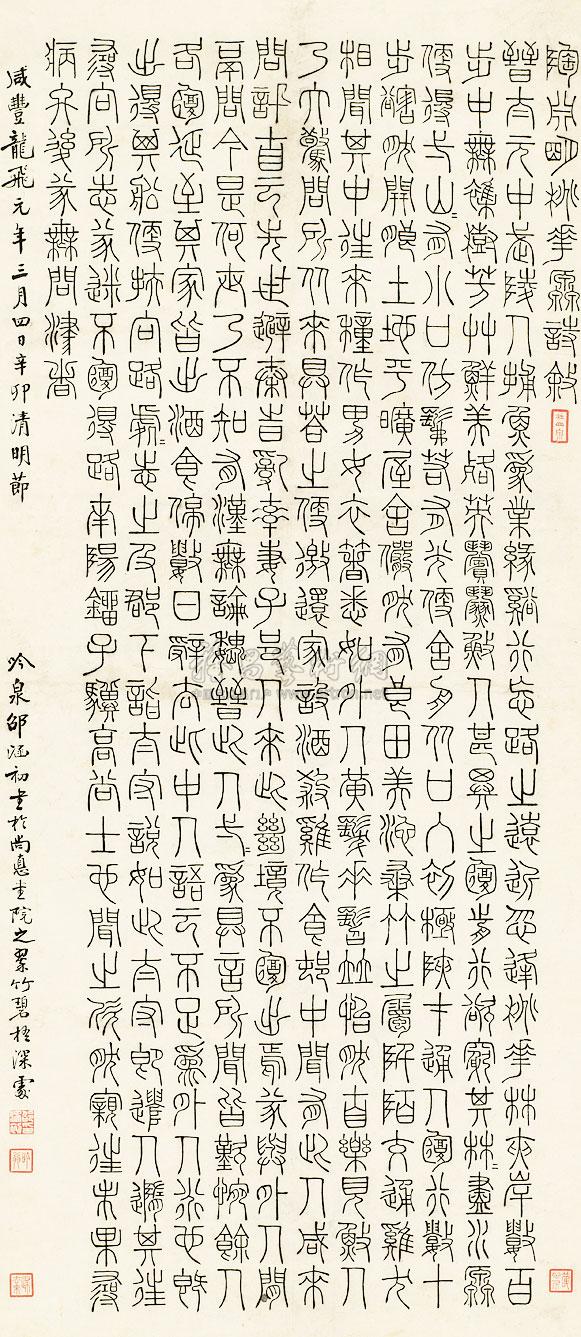 陶淵明桃華源詩敘
晉太元中武陵人捕魚為業緣谿行忘路之遠近忽逢桃華林夾岸數百
步中無雜樹芳艸鮮美落英繽紛漁人甚異之復前行欲窮其林=盡水源
便得一山=有小口仿髴若有光便舍船從口入初極陝才通人復行數十
步豁然開朗土地平曠屋舍儼然有良田美池桑竹之屬阡陌交通雞犬
相聞其中往來種作男女衣著悉如外人黃髮垂髫並怡然自樂見漁人
乃大驚問所從來具答之便邀還家設酒殺雞作食邨中聞有此人咸來
問訊自云先世避秦時亂率妻子邑人來此絕境不復出焉遂與外人閒
鬲問今是何世乃不知有漢無論魏晉此人一=為具言所聞皆歎惋餘人
各復延至其家皆出酒食停數日辭去此中人語云不足為外人道也既
出得其船便扶向路處=志之及郡下詣太守說如此太守即遣人隨其往
尋向所志遂迷不復得路南陽劉子驥高尚士也聞之欣然親往未果尋
病終後遂無問津者
咸豐龍飛元年三月四日辛卯清明節
吟泉邵涵初書於尚惪書院之翠竹碧梧深處